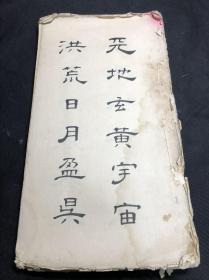 天地玄黄宇宙
洪荒日月盈昃